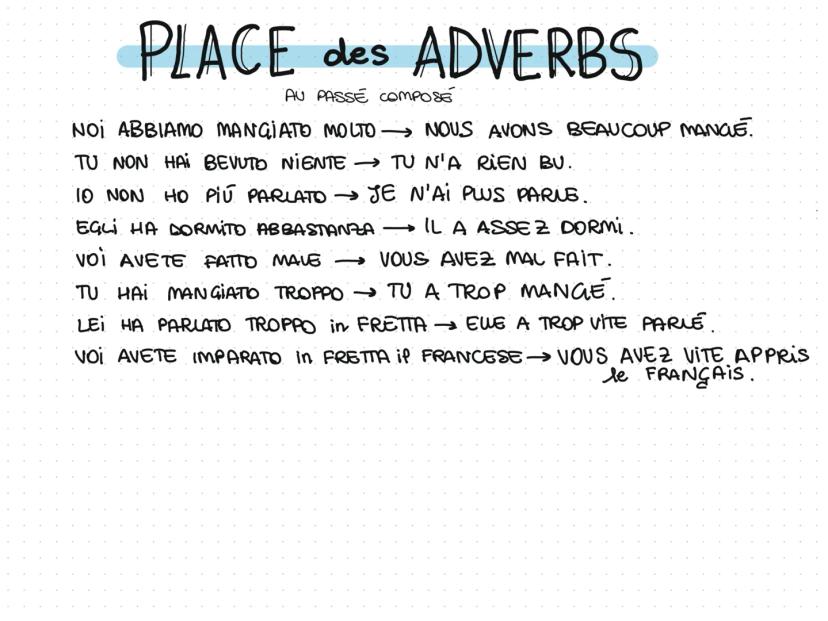 PLACE des ADVERBS
AU PASSÉ COMPOSÉ
NOi ABBIAMO MANGIATO MOLTO → NOUS AVONS BEAUCOUP MANGÉ.
TU NON HAi BEVUTO NIENTE → TU N'A RIEN BU.
IO NON HO PIÚ PARLATO → JE N'Ai PLUS PARLE.
EGLi HA DORMITO ABBASTANZA → IL A ASSEZ DORMi.
VOi AVETE FATTO MALE → VOUS AVEZ MAL FAIT.
TU HAi MANGIATO TROPPO → TU A TROP MANGÉ.
LEi HA PARLATO TROPPO in FRETTA → ELLE A TROP ViTE PARLÉ.
VOi AVETE IMPARATO In FRETTA il FRANCESE → VOUS AVEZ ViTE APPRiS
le FRANÇAiS.